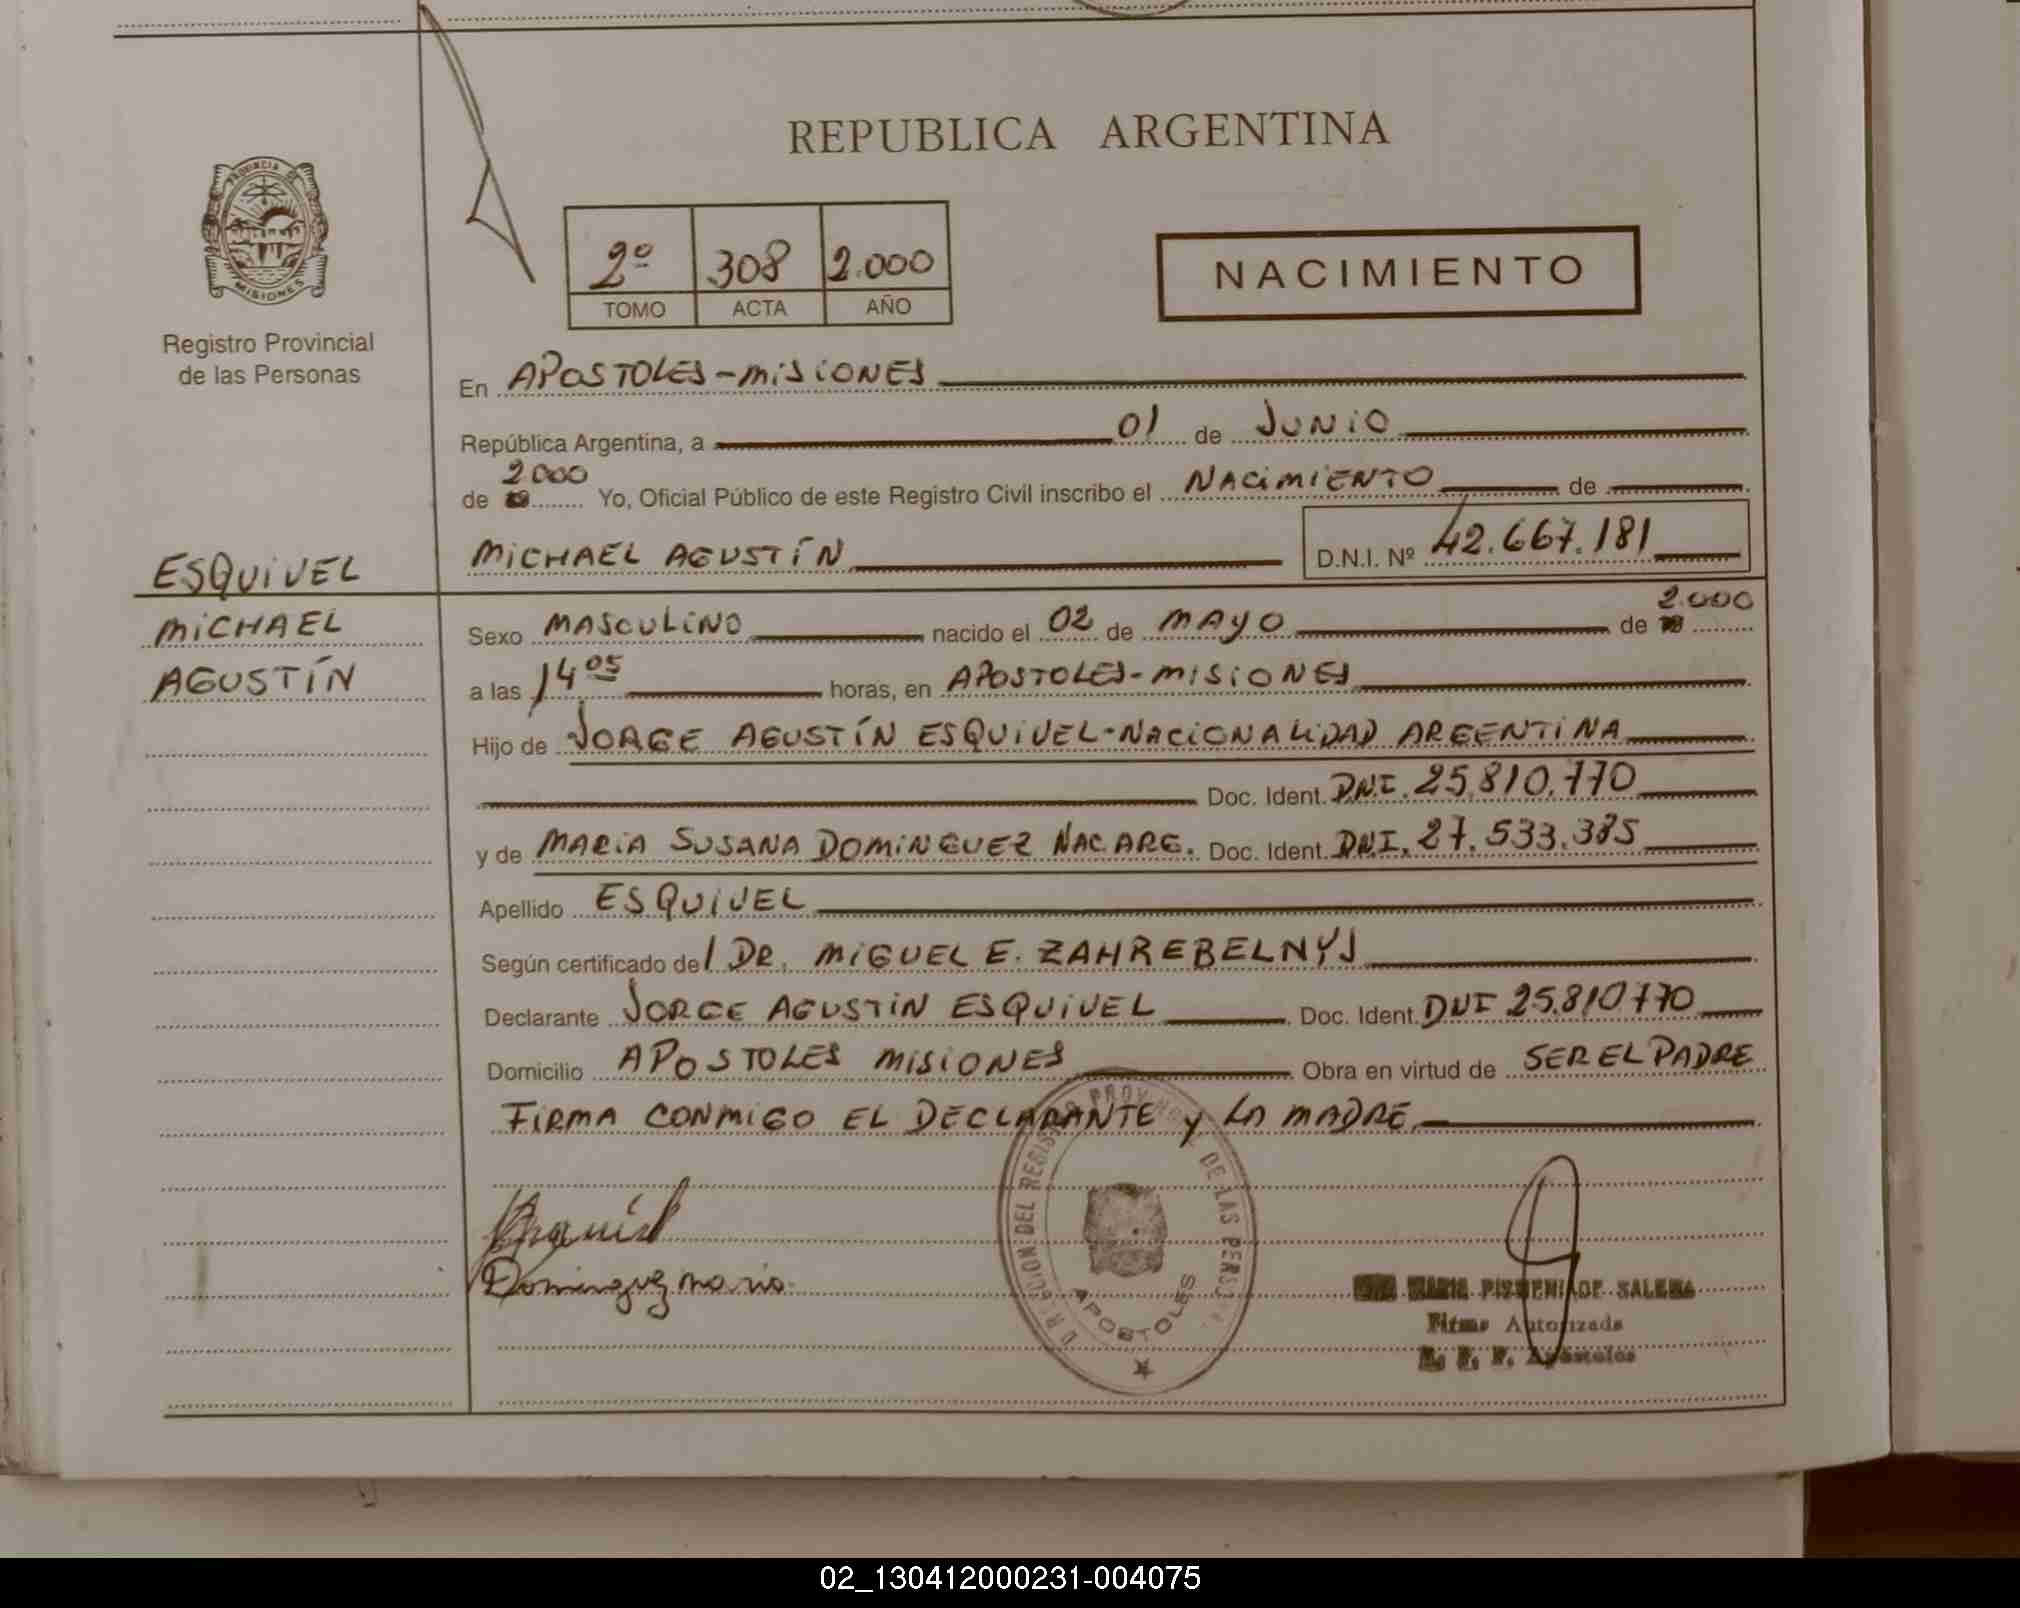 REPUBLICA ARGENTINA
PROVINCIA DE
MISIONES
Registro Provincial
de las Personas
2º 308 2.000
TOMO ACTA AÑO
NACIMIENTO
En APOSTOLES-MISIONES
República Argentina, a 01 de JUNIO
2000
de Yo, Oficial Público de este Registro Civil inscribo el NACIMIENTO de
MICHAEL AGUSTÍN D.N.I. Nº 42.667.181
ESQUIVEL
MICHAEL
AGUSTÍN
Sexo MASCULINO nacido el 02 de MAYO de 2.000
a las 14 05 horas, en APOSTOLES-MISIONES
Hijo de JORGE AGUSTÍN ESQUIVEL-NACIONALIDAD ARGENTINA
Doc. Ident. DNI. 25.810.770
y de MARIA SUSANA DOMINGUEZ NAC.ARG. Doc. Ident. DNI. 27.533.385
Apellido ESQUIVEL
Según certificado del DR. MIGUEL E. ZAHREBELNYJ
Declarante JORGE AGUSTIN ESQUIVEL Doc. Ident. DNI 25.810770
Domicilio APOSTOLES MISIONES Obra en virtud de SER EL PADRE
FIRMA CONMIGO EL DECLARANTE y LA MADRE
Esquivel
Dominguez maria
DIRECCION DEL REGISTRO PROVINCIAL DE LAS PERSONAS
APOSTOLES
MARIA DE SALEMA
Firma Autorizada
Apóstoles
02_130412000231-004075